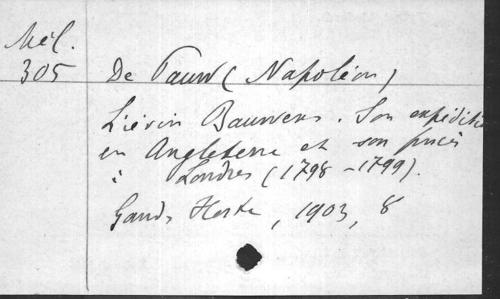 Mél.
305
De Pauw (Napoléon)
Liévin Bauwens. Son expédition
en Angleterre et son procès
à Londres (1798-1799).
Gand, Hoste, 1903, 8